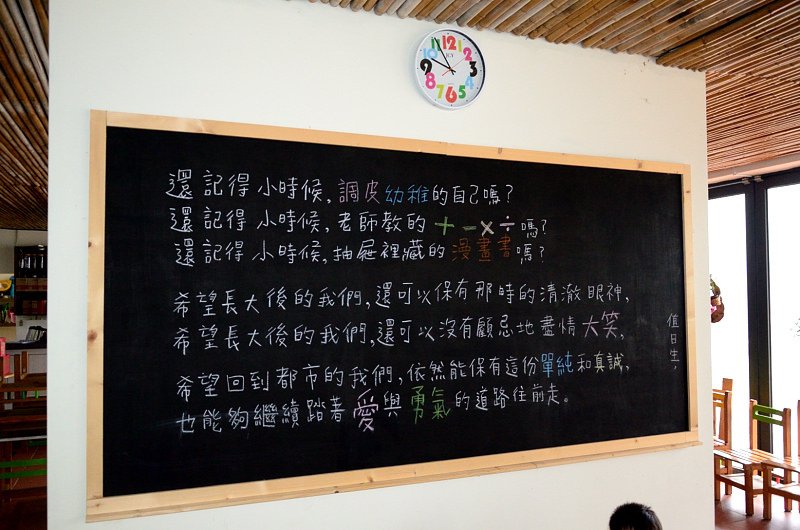 還記得小時候,調皮幼稚的自己嗎?
還記得小時候,老師教的+-×÷嗎?
還記得小時候,抽屜裡藏的漫畫書嗎?
希望長大後的我們,還可以保有那時的清澈眼神,
希望長大後的我們,還可以沒有顧忌地盡情大笑,
希望回到都市的我們,依然能保有這份單純和真誠,
也能夠繼續踏著愛與勇氣的道路往前走。
值日生,
12
1
2
3
4
5
6
7
8
9
10
11